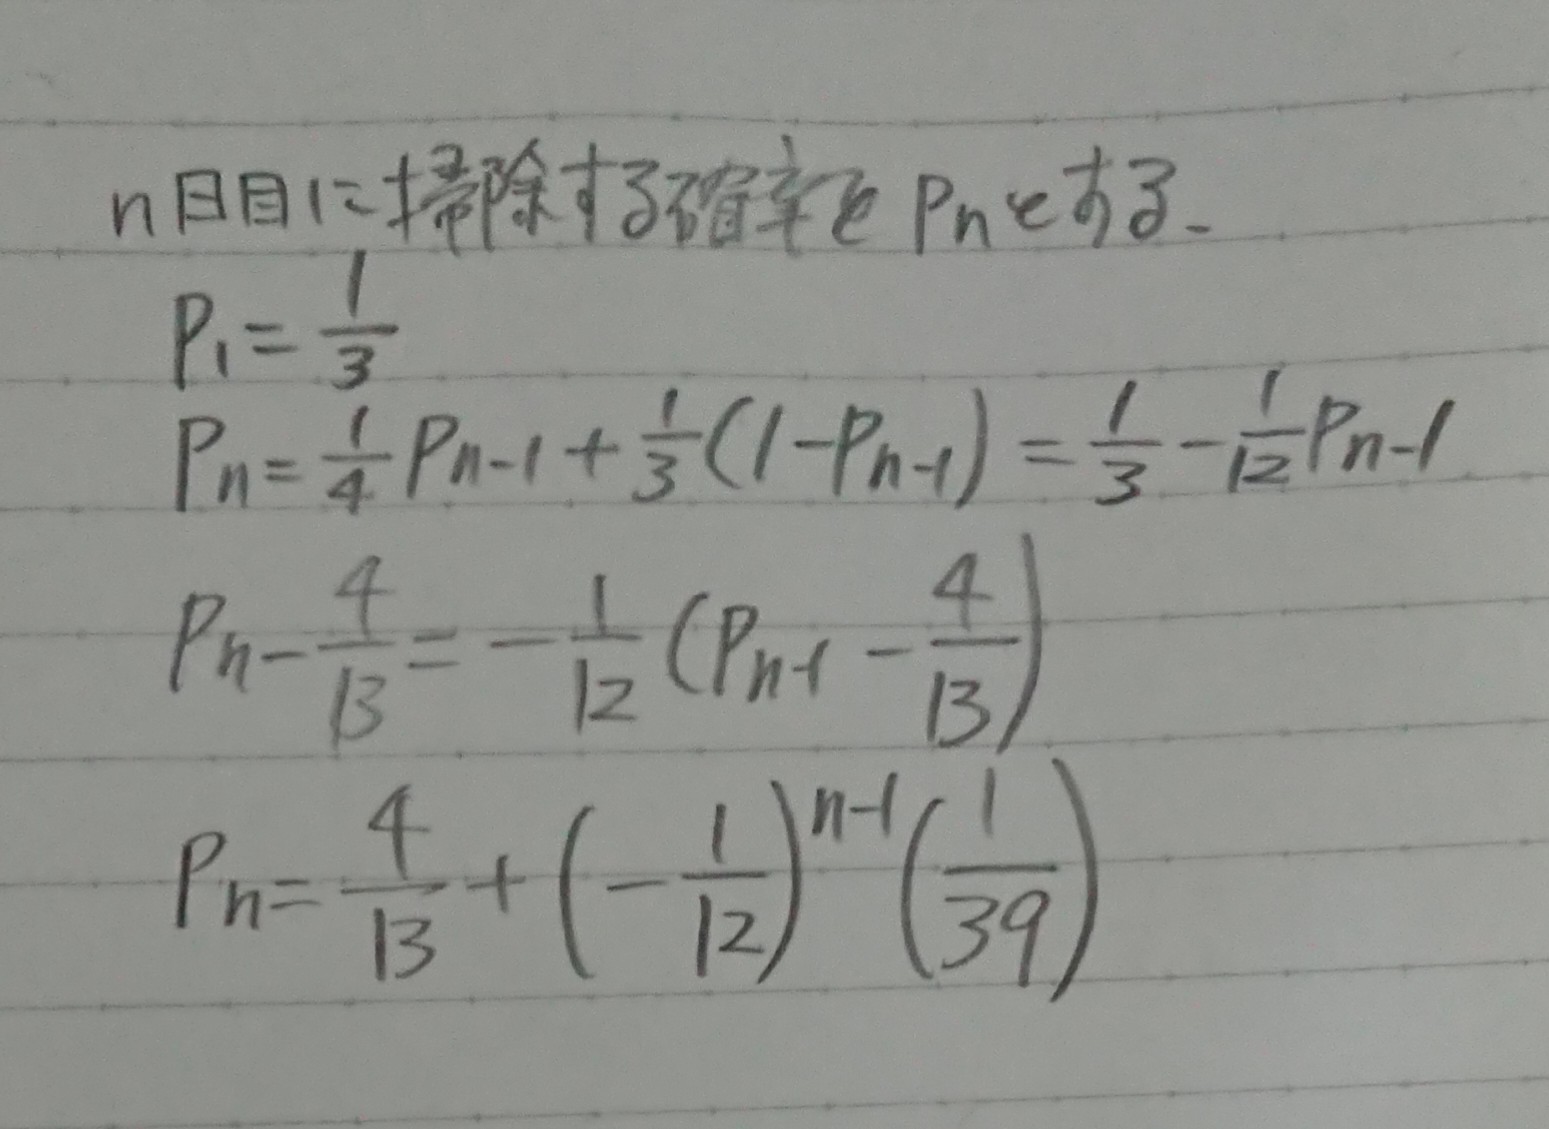 n日目に掃除する確率を Pnとする.
P₁ = 1/3
Pn = 1/4 Pn-1 + 1/3 (1-Pn-1) = 1/3 - 1/12 Pn-1
Pn - 4/13 = - 1/12 (Pn-1 - 4/13)
Pn = 4/13 + (- 1/12)^n-1 (1/39)